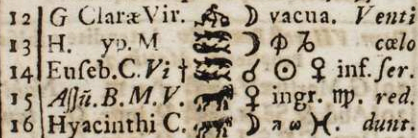 12 G Claræ Vir. ☽ vacua. Venti
13 H. yp. M ☽ ♑ cœlo
14 Euſeb. C. Vi † ☌ ☉ ♀ inf. ſer.
15 Aſſũ. B. M. V. ♀ ingr. ♍. red.
16 Hyacinthi C. ☽ ♓ dunt.